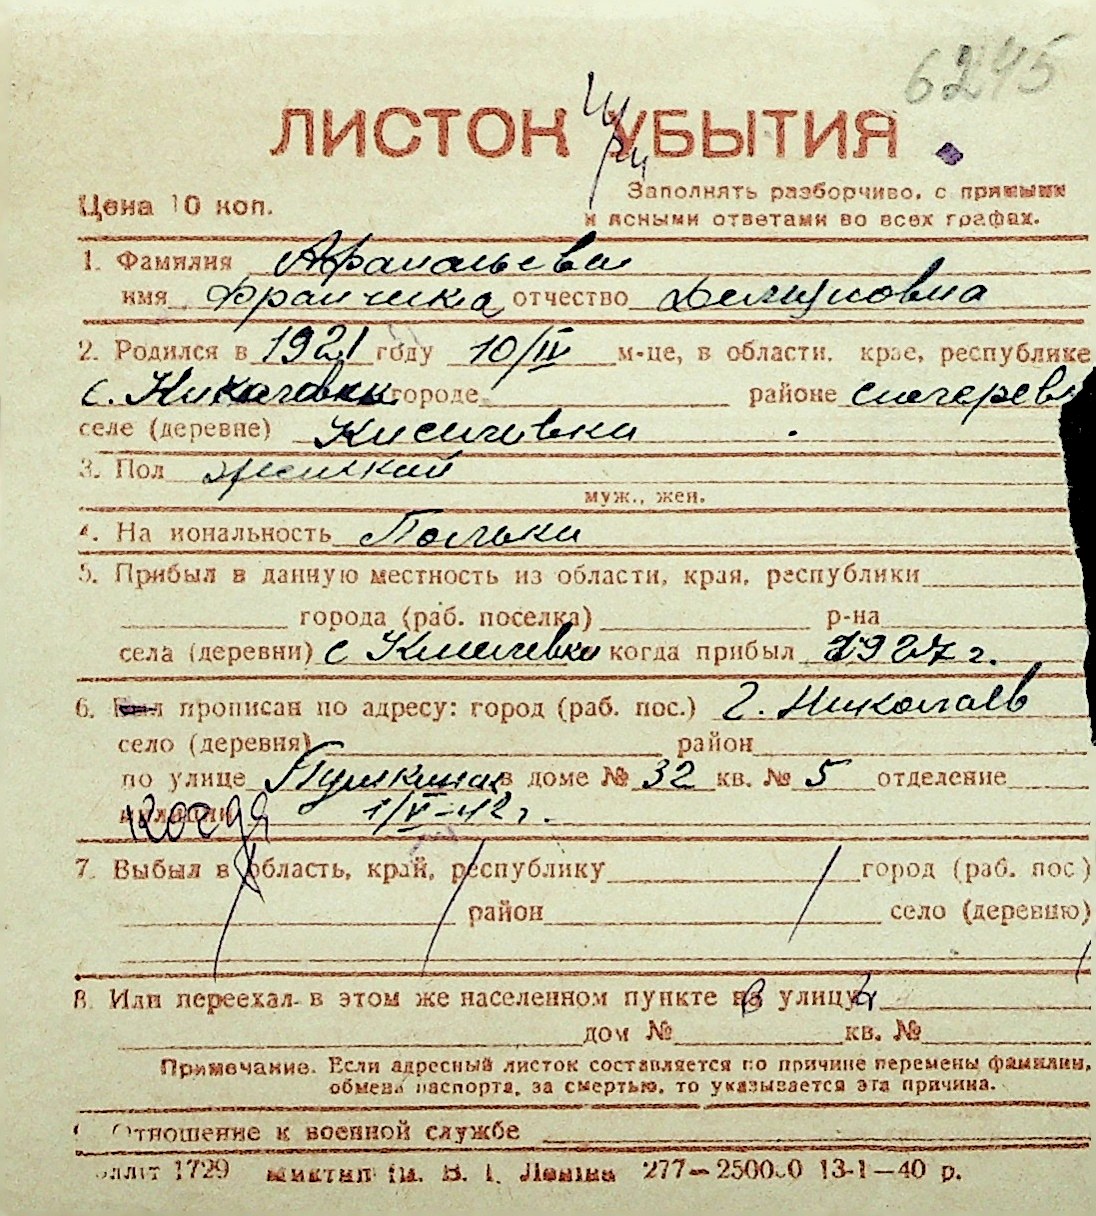 6245
ЛИСТОК УБЫТИЯ
Цена 10 коп.
Заполнять разборчиво, с прямыми
и ясными ответами во всех графах.
1. Фамилия
имя Франчика отчество
2. Родился в 1921 году 10/IV м-це, в области, крае, республике
с. городе районе снегерев
селе (деревне) Киселевка
3. Пол женский
муж., жен.
4. На иональность Полька
5. Прибыл в данную местность из области, края, республики
города (раб. поселка) р-на
села (деревни) с Киселевка когда прибыл 1927 г.
6. прописан по адресу: город (раб. пос.) г. Николаев
село (деревня) район
по улице Пушкинск в доме № 32 кв. № 5 отделение
когда 1/V-42 г.
7. Выбыл в область, край, республику город (раб. пос.)
район село (деревню)
8. Или переехал в этом же населенном пункте в улицу
дом № кв. №
Примечание. Если адресный листок составляется по причине перемены фамилии,
обмена паспорта, за смертью, то указывается эта причина.
Отношение к военной службе
1729 277—250000 13-1—40 р.